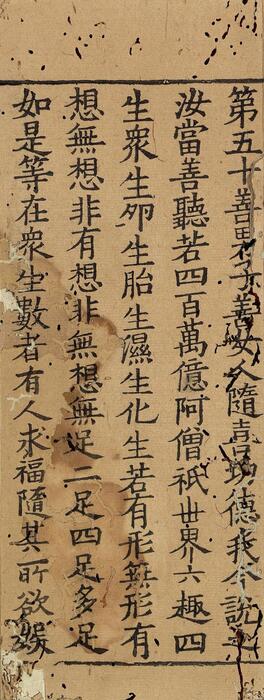 第五十善男子善女人隨喜功德我今說之
汝當善聽若四百萬億阿僧祇世界六趣四
生衆生卵生胎生濕生化生若有形無形有
想無想非有想非無想無足二足四足多足
如是等在衆生數者有人求福隨其所欲娛